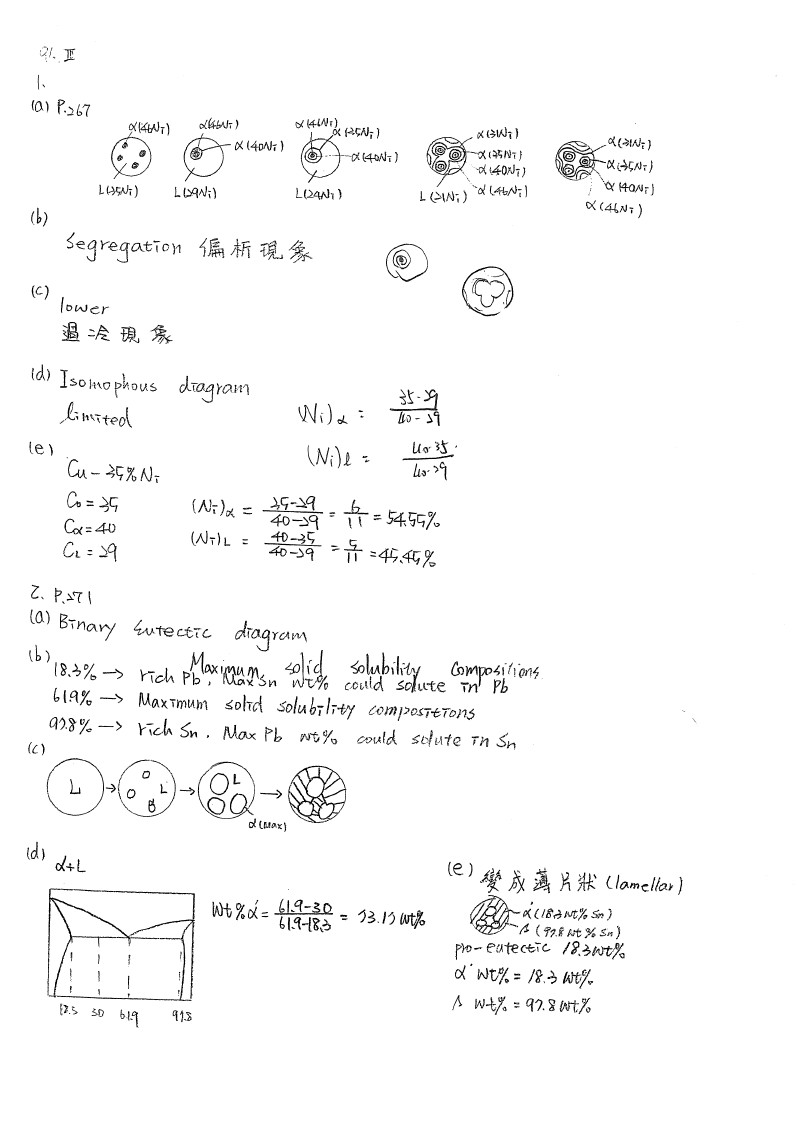 91. III
1.
(a) P.267
α(46Ni) α(46Ni) α(40Ni) α(46Ni) α(35Ni) α(40Ni) α(31Ni) α(35Ni) α(40Ni) α(46Ni) α(31Ni) α(35Ni) α(40Ni) α(46Ni)
L(35Ni) L(29Ni) L(24Ni) L(21Ni)
(b)
Segregation 偏析現象
(c)
lower
過冷現象
(d) Isomophous diagram
limited
(Ni)α = 35-29 / 40-29
(Ni)l = 40-35 / 40-29
(e)
Cu - 35%Ni
C₀ = 35
Cα = 40
CL = 29
(Ni)α = 35-29 / 40-29 = 6/11 = 54.55%
(Ni)L = 40-35 / 40-29 = 5/11 = 45.45%
2. P.271
(a) Binary Eutectic diagram
(b) Maximum solid solubility compositions
18.3% → rich Pb, Max Sn wt% could solute in Pb
61.9% → Maximum solid solubility compositions
97.8% → rich Sn, Max Pb wt% could solute in Sn
(c)
L L L
α(Max)
(d)
α+L
Wt%α' = 61.9-30 / 61.9-18.3 = 73.17 wt%
18.3 30 61.9 97.8
(e) 變成薄片狀(lamellar)
α'(18.3wt% Sn)
β(97.8wt% Sn)
pro-eutectic 18.3wt%
α' wt% = 18.3 wt%
β wt% = 97.8 wt%